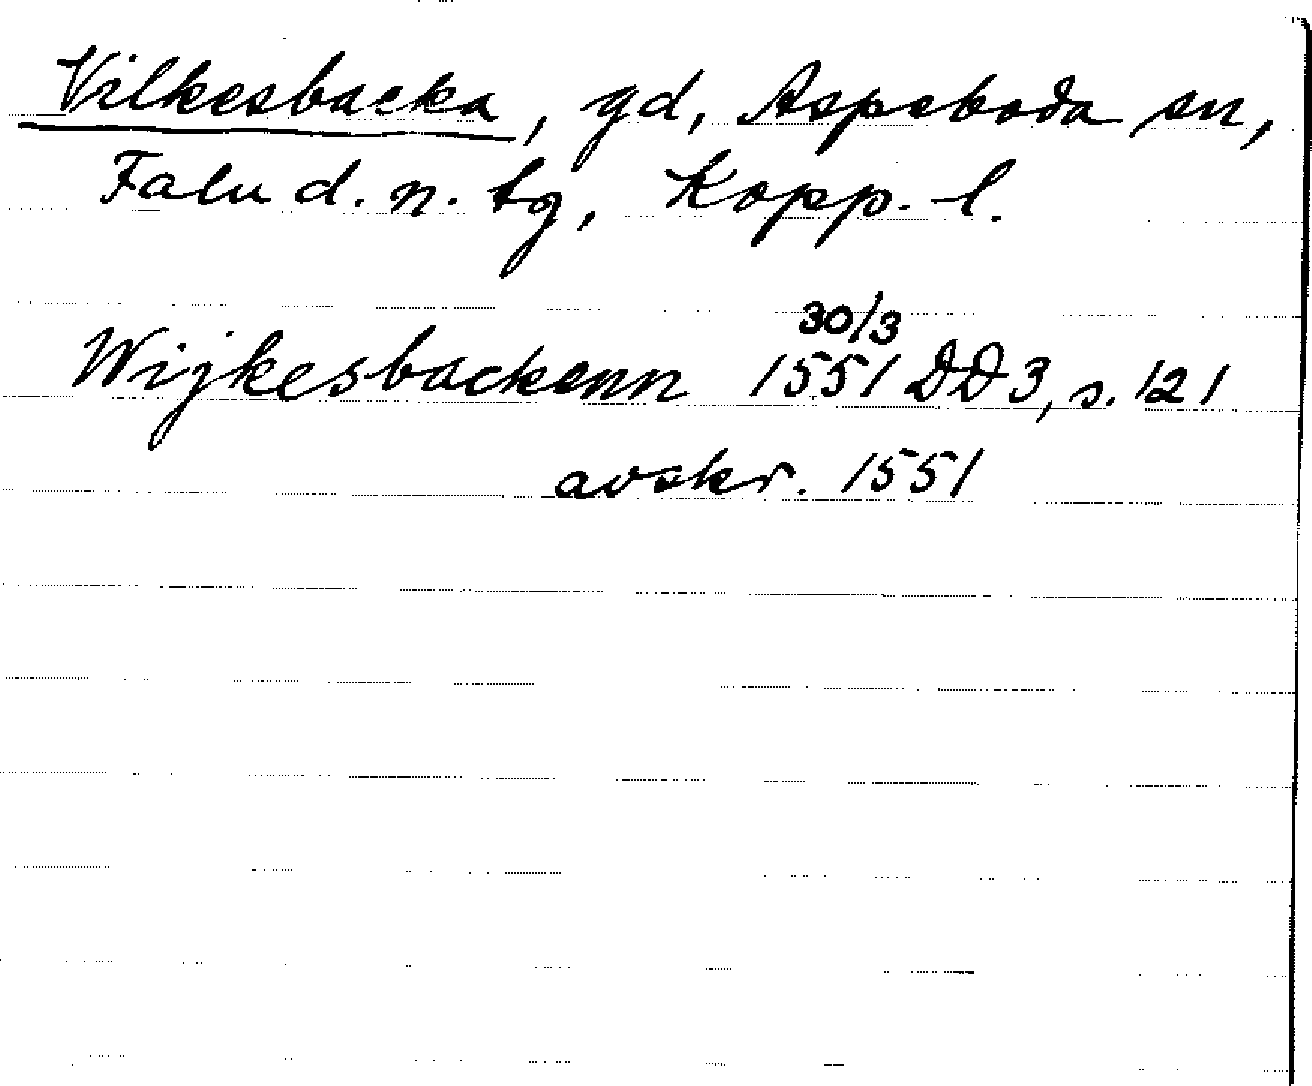 Vilkesbacka, gd, Aspeboda sn,
Falu d. n. tg, Kopp. l.
30/3
Wijkesbackenn 1551 DD3, s. 121
avskr. 1551